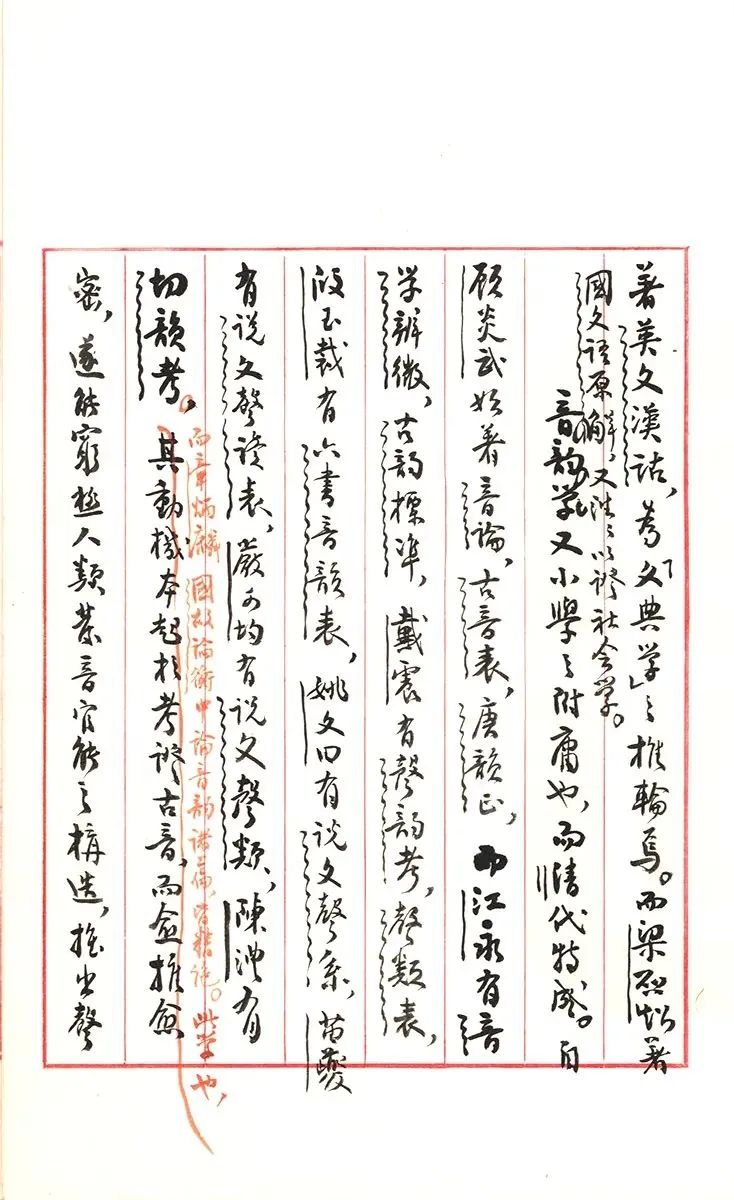 著英文漢詁，為「文典学」之椎輪焉。而梁啟超著
國文語原解，又往往以證社会学。
音韵学又小學之附庸也，而清代特盛。自
顾炎武始著音論，古音表，唐韻正，而江永有音
学辨微，古韵標準，戴震有聲韵考，聲類表，
段玉裁有六書音韻表，姚文田有说文聲系，苗夔
有说文聲读表，嚴可均有说文聲類，陳澧有
切韻考，
而章炳麟國故論衡中論音韵諸篇，皆精绝。此学也，
其動機本起於考證古音，而愈推愈
密，遂能窮極人類發音官能之構造，推出聲